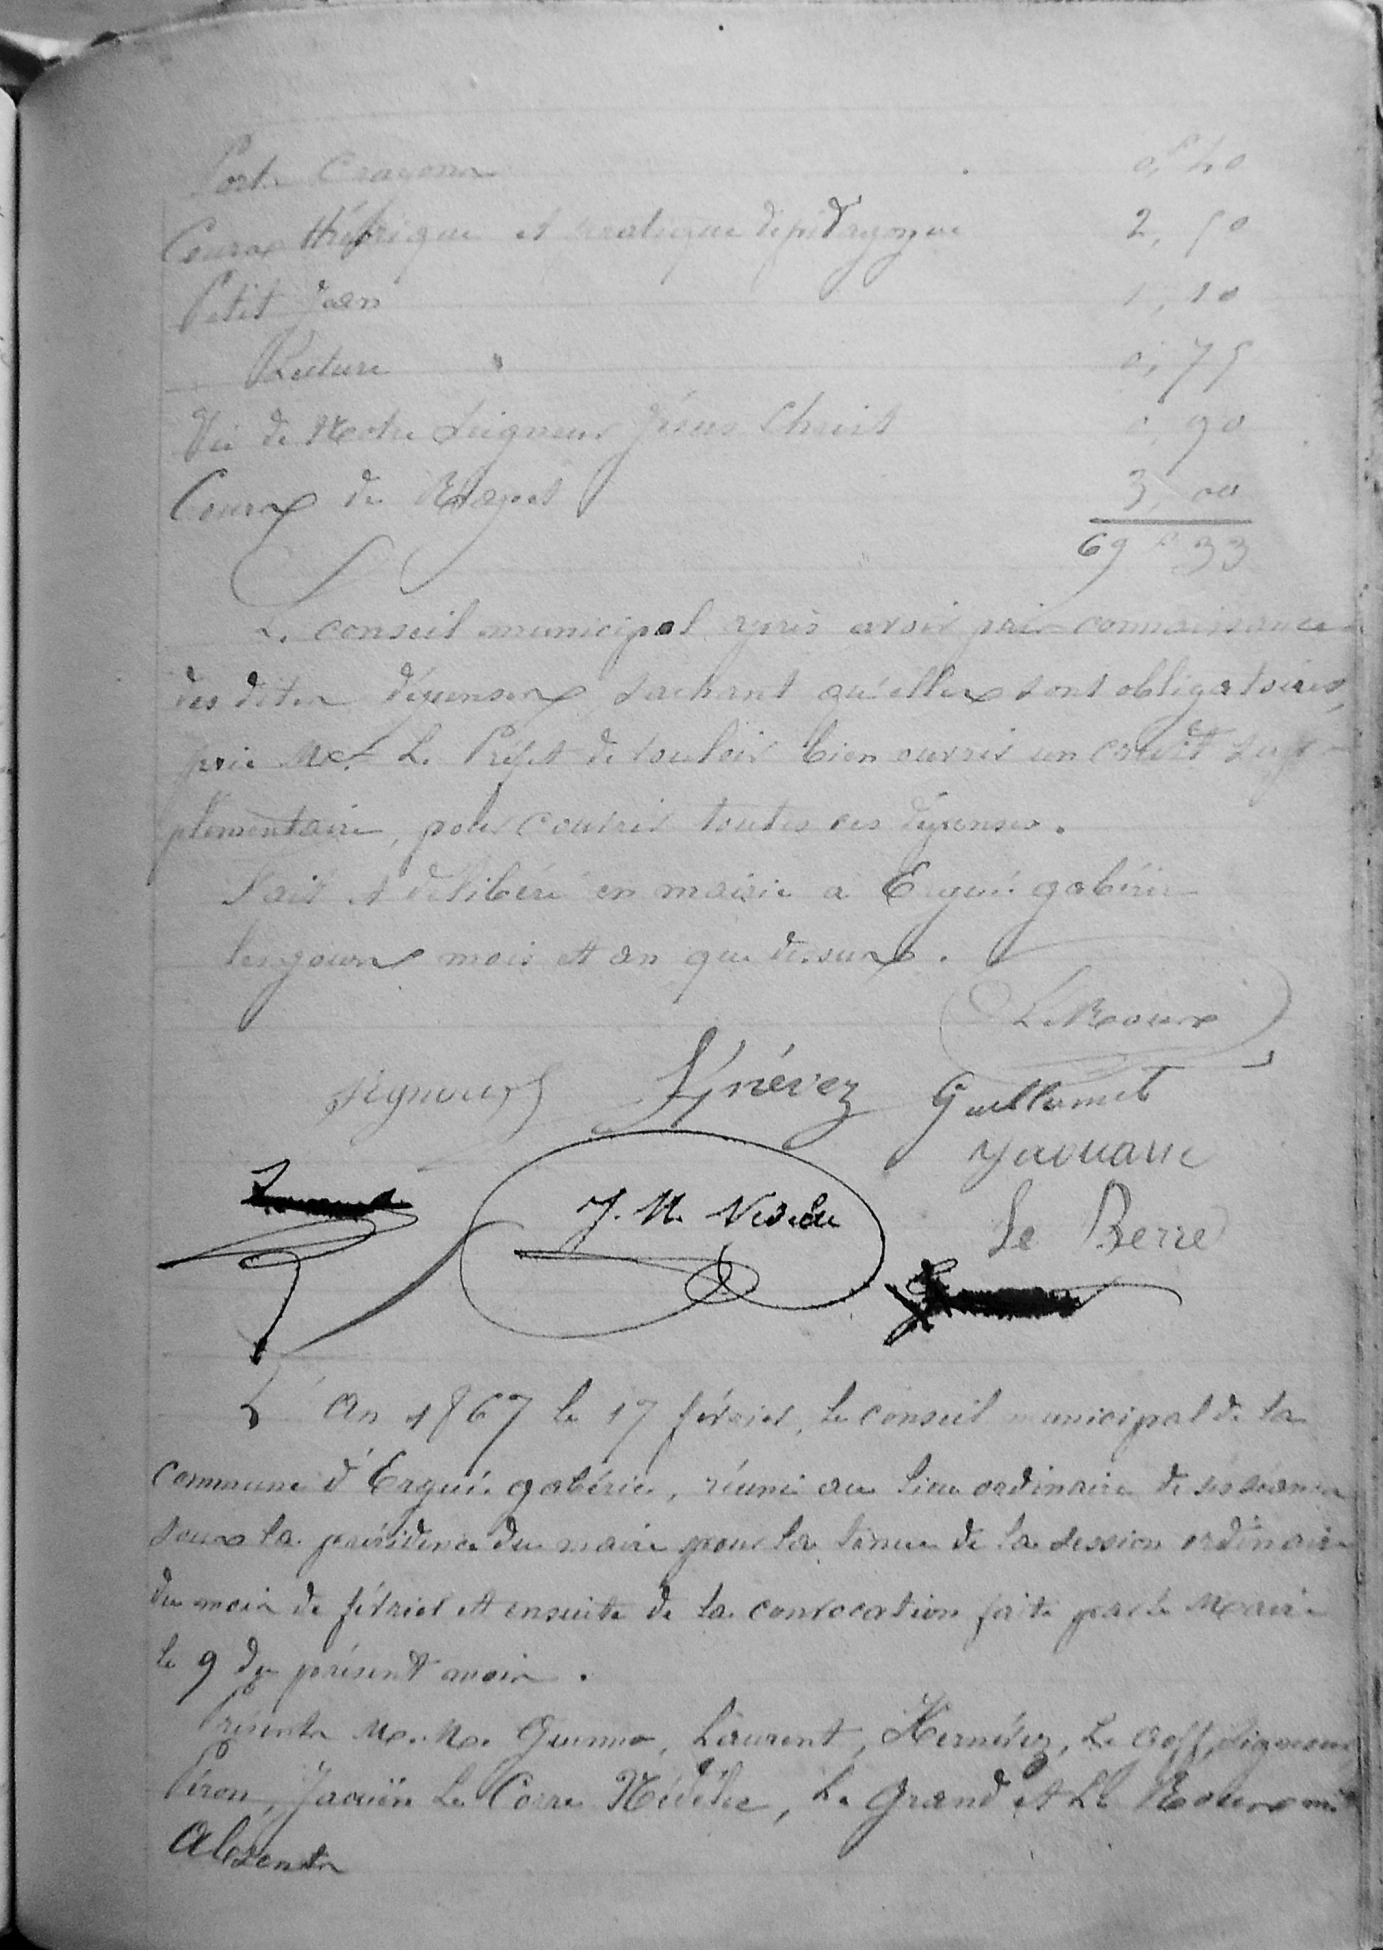 Porte Crayons 0,f 40
Cours théorique et pratique de pédagogie 2, 50
Petit Jean 1, 10
Lecture " 0, 75
Vie de Notre Seigneur Jésus Christ 0, 90
Cours de 3, 00
69 f 33
Le conseil municipal après avoir pris connaissance
des dites dépenses sachant qu'elles sont obligatoires,
prie Mr. Le Préfet de vouloir bien ouvrir un crédit sup-
plémentaire, pour couvrir toutes ces dépenses.
Fait et délibéré en mairie a Ergué gabéric
les jours mois et an que dessus.
Le Roux
Signour Kjnévez Guillamet
Yaouanc
J. M. Nédélec Le Berre
L'An 1867 le 17 février, le conseil municipal de la
commune d'Ergué gabéric, réuni au lieu ordinaire de ses séances
sous la présidence du maire pour la tenue de la session ordinaire
du mois de février et ensuite de la convocation faite par le Maire
le 9 du présent mois.
Présents M.M. Laurent, Kernévez, Le Goff, Signour
Péron, Jaouën Le Corre Nédélec, Le Grand et Le Roux
Absents